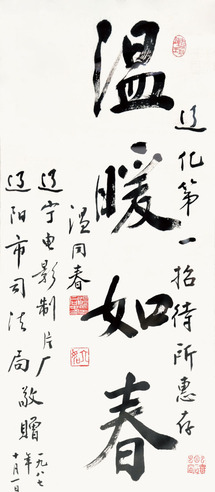 辽化第一招待所惠存
温暖如春
温同春
辽宁电影制片厂
辽阳市司法局敬赠
一九八七年十月一日